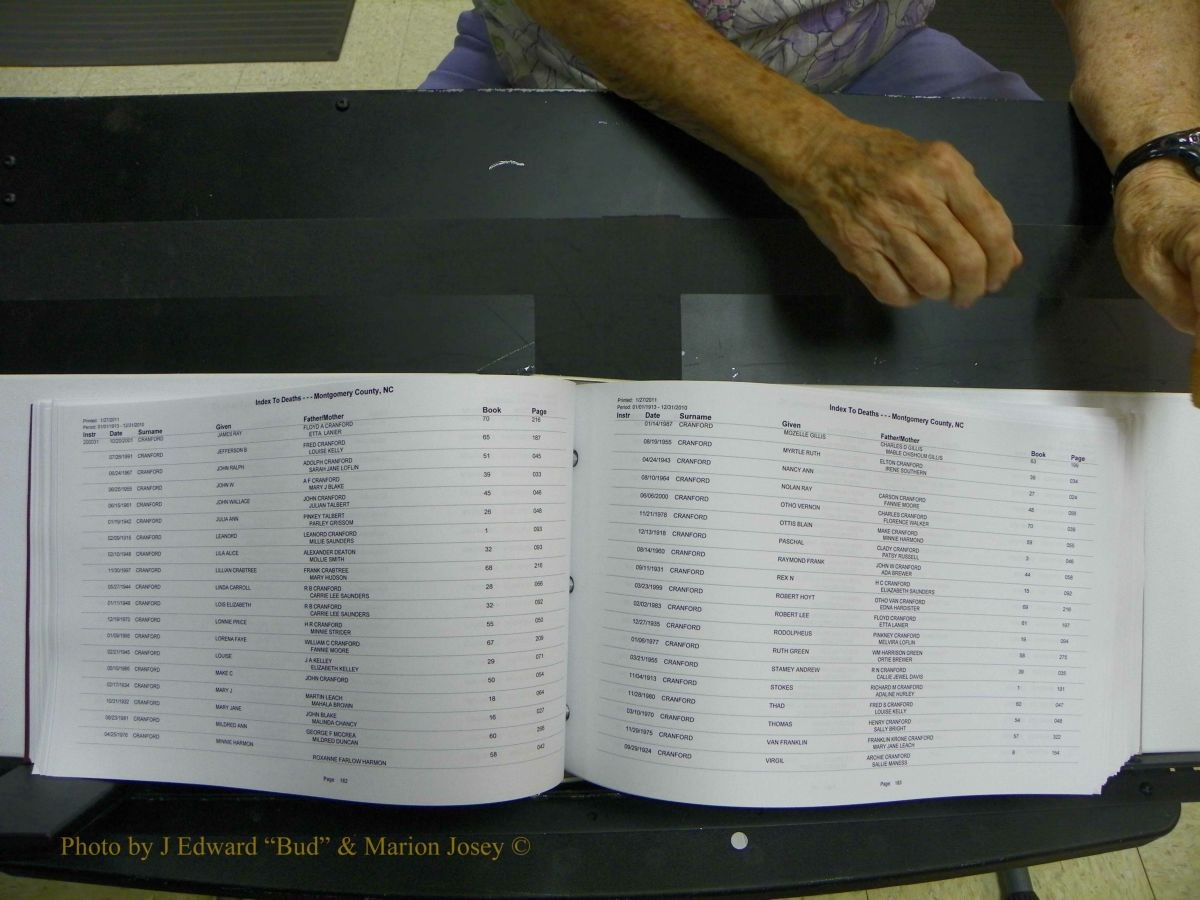 Index To Deaths - - - Montgomery County, NC
Printed: 1/27/2011
Period: 01/01/1913 - 12/31/2010
Instr Date Surname Given Father/Mother Book Page
200311 10/20/2001 CRANFORD JAMES RAY FLOYD A CRANFORD 70 216
ETTA LANIER
07/28/1991 CRANFORD JEFFERSON B FRED CRANFORD 65 187
LOUISE KELLY
06/24/1967 CRANFORD JOHN RALPH ADOLPH CRANFORD 51 045
SARAH JANE LOFLIN
06/20/1955 CRANFORD JOHN W A F CRANFORD 39 033
MARY J BLAKE
06/15/1961 CRANFORD JOHN WALLACE JOHN CRANFORD 45 046
JULIAN TALBERT
01/19/1942 CRANFORD JULIA ANN PINKEY TALBERT 26 048
PARLEY GRISSOM
02/09/1916 CRANFORD LEANORD LEANORD CRANFORD 1 093
MILLIE SAUNDERS
02/10/1948 CRANFORD LILA ALICE ALEXANDER DEATON 32 093
MOLLIE SMITH
11/30/1997 CRANFORD LILLIAN CRABTREE FRANK CRABTREE 68 216
MARY HUDSON
05/27/1944 CRANFORD LINDA CARROLL R B CRANFORD 28 066
CARRIE LEE SAUNDERS
01/11/1948 CRANFORD LOIS ELIZABETH R B CRANFORD 32 092
CARRIE LEE SAUNDERS
12/19/1970 CRANFORD LONNIE PRICE H R CRANFORD 55 050
MINNIE STRIDER
01/09/1995 CRANFORD LORENA FAYE WILLIAM C CRANFORD 67 209
FANNIE MOORE
02/21/1945 CRANFORD LOUISE J A KELLEY 29 071
ELIZABETH KELLEY
CRANFORD MAKE C JOHN CRANFORD 50 054
02/17/1934 CRANFORD MARY J MARTIN LEACH 18 064
MAHALA BROWN
10/21/1932 CRANFORD MARY JANE JOHN BLAKE 16 027
MALINDA CHANCY
CRANFORD MILDRED ANN GEORGE F MCCREA 60
MILDRED DUNCAN
04/25/1976 CRANFORD MINNIE HARMON 58 042
ROXANNE FARLOW HARMON
Page 182
Index To Deaths - - - Montgomery County, NC
Printed: 1/27/2011
Period: 01/01/1913 - 12/31/2010
Instr Date Surname Given Father/Mother Book Page
01/14/1987 CRANFORD MOZELLE GILLIS CHARLES D GILLIS 63 199
MABLE CHISHOLM GILLIS
08/19/1955 CRANFORD MYRTLE RUTH ELTON CRANFORD 39 034
IRENE SOUTHERN
04/24/1943 CRANFORD NANCY ANN 27 024
08/10/1964 CRANFORD NOLAN RAY CARSON CRANFORD 48
FANNIE MOORE
06/06/2000 CRANFORD OTHO VERNON CHARLES CRANFORD 70
FLORENCE WALKER
11/21/1976 CRANFORD OTTIS BLAIN MAKE CRANFORD 59
MINNIE HARMOND
12/13/1918 CRANFORD PASCHAL CLADY CRANFORD 3 046
PATSY RUSSELL
08/14/1960 CRANFORD RAYMOND FRANK JOHN W CRANFORD 44 058
ADA BREWER
09/11/1931 CRANFORD REX N H C CRANFORD 15 092
ELIAZABETH SAUNDERS
03/23/1999 CRANFORD ROBERT HOYT OTHO VAN CRANFORD 69 216
EDNA HARDISTER
02/02/1983 CRANFORD ROBERT LEE FLOYD CRANFORD 61 197
ETTA LANIER
12/27/1935 CRANFORD RODOLPHEUS PINKNEY CRANFORD 19 094
MELVIRA LOFLIN
01/06/1977 CRANFORD RUTH GREEN WM HARRISON GREEN 58 275
ORTIE BREWER
03/21/1955 CRANFORD STAMEY ANDREW R N CRANFORD 39 035
CALLIE JEWEL DAVIS
11/04/1913 CRANFORD STOKES RICHARD M CRANFORD 1 101
ADALINE HURLEY
11/28/1980 CRANFORD THAD FRED S CRANFORD 60 047
LOUISE KELLY
03/10/1970 CRANFORD THOMAS HENRY CRANFORD 54 048
SALLY BRIGHT
11/29/1975 CRANFORD VAN FRANKLIN FRANKLIN KRONE CRANFORD 57 322
MARY JANE LEACH
09/29/1924 CRANFORD VIRGIL ARCHIE CRANFORD 8 154
SALLIE MANESS
Page 183
Photo by J Edward “Bud” & Marion Josey ©